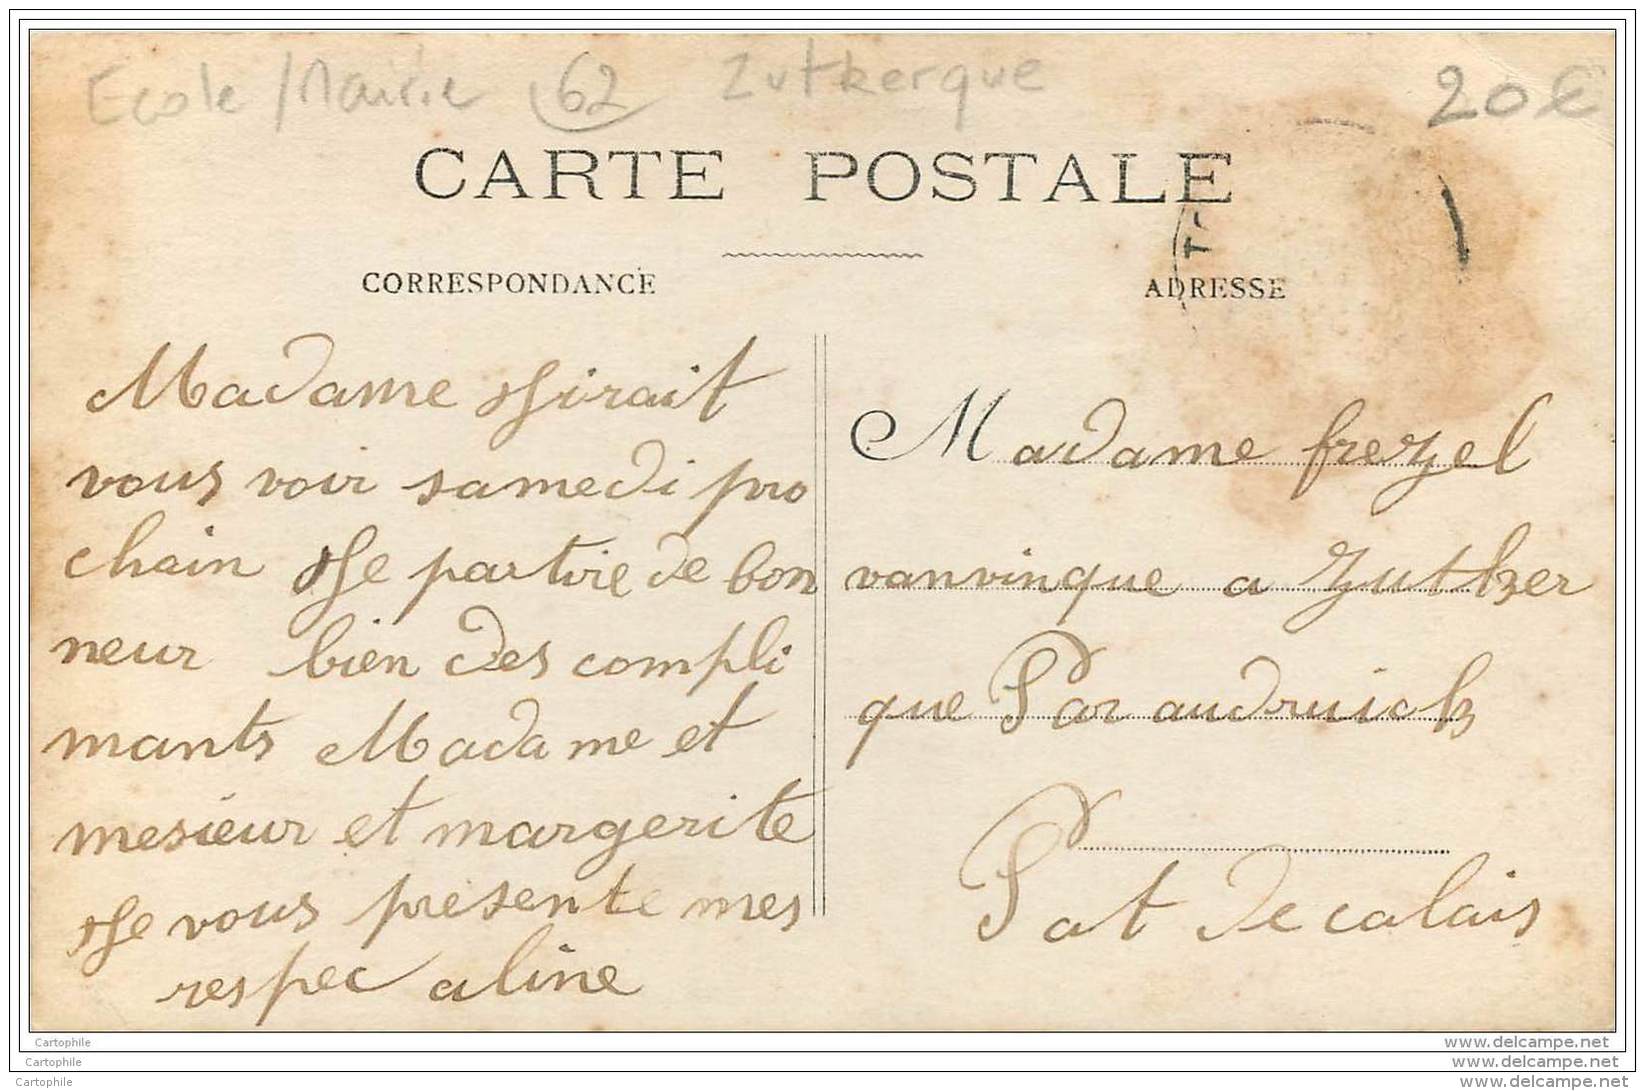 Ecole / Mairie 62 Zutkerque 20€
CARTE POSTALE
CORRESPONDANCE
Madame Jirait
vous voir samedi pro
chain Je partire de bon
neur bien des compli
mants Madame et
mesieur et margerite
Je vous presente mes
respec aline
ADRESSE
T
Madame frezel
vanvinque a Zutker
que Par audruick
Pat de calais
Cartophile
Cartophile
Cartophile
www.delcampe.net
www.delcampe.net
www.delcampe.net